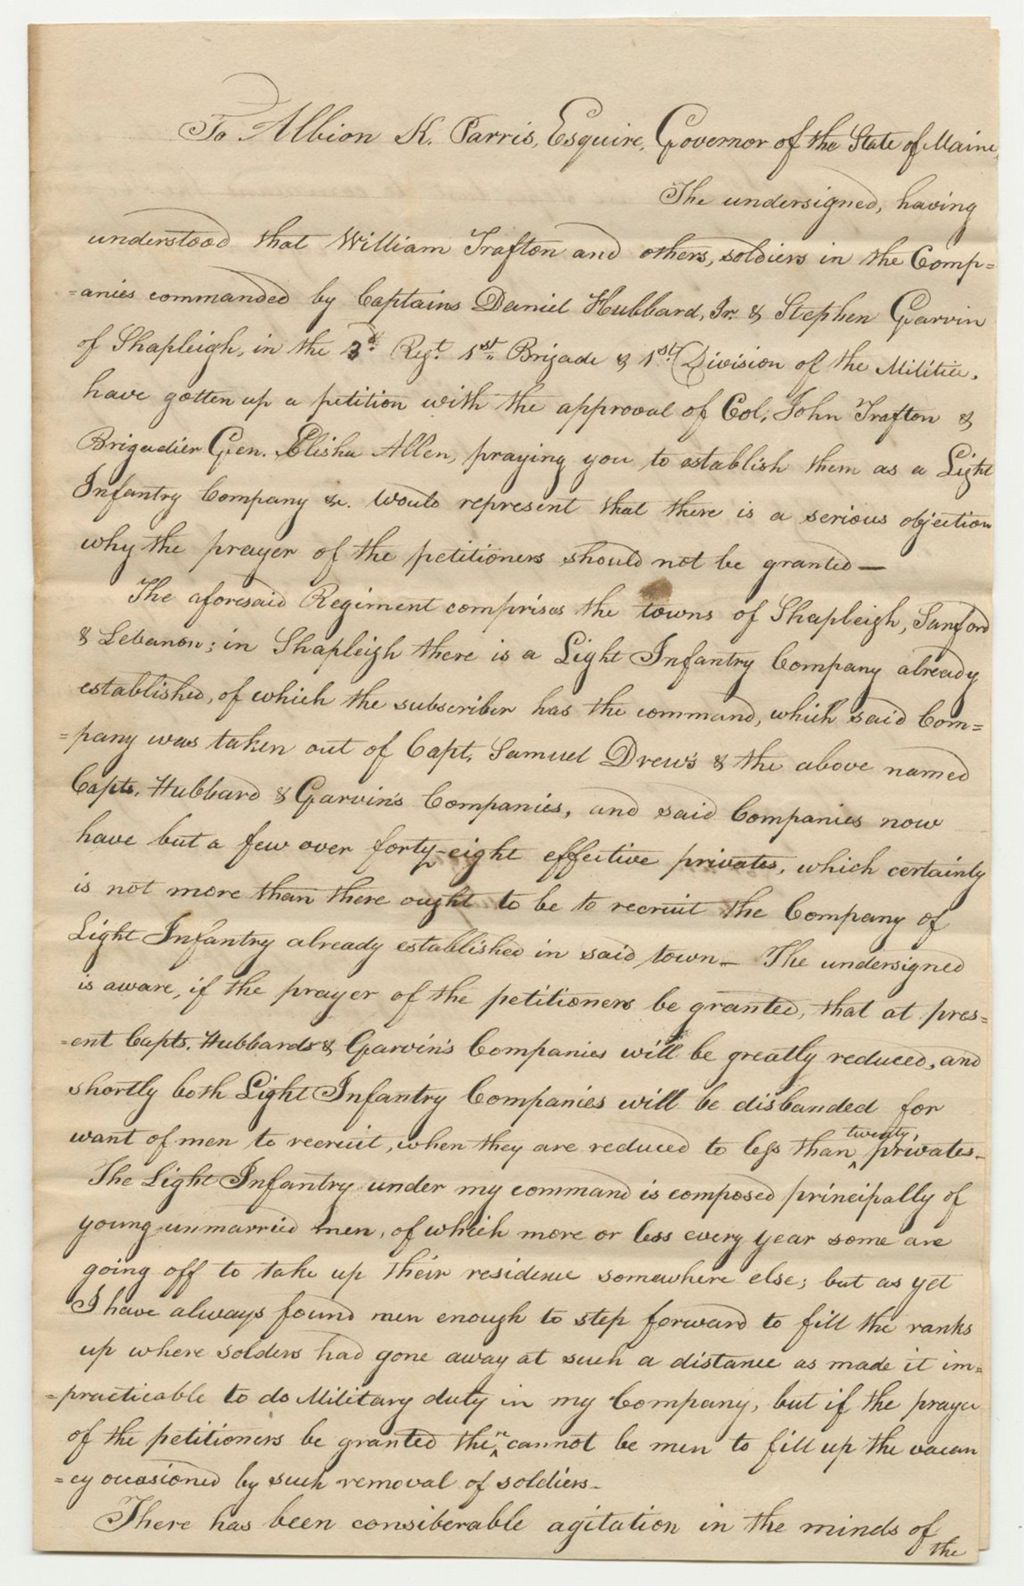 To Albion K. Parris, Esquire, Governor of the State of Maine,
The undersigned, having
understood that William Trafton and others, soldiers in the Comp=
=anies commanded by Captains Daniel Hubbard, Jr. & Stephen Garvin
of Shapleigh, in the 3d. Regt. 1st. Brigade & 1st. Division of the Militia,
have gotten up a petition with the approval of Col. John Trafton &
Brigadier Gen. Elisha Allen, praying you to establish them as a Light
Infantry Company &c. would represent that there is a serious objection
why the prayer of the petitioners should not be granted—
The aforesaid Regiment comprises the towns of Shapleigh, Sanford
& Lebanon; in Shapleigh there is a Light Infantry Company already
established, of which the subscriber has the command, which said Com=
=pany was taken out of Capt. Samuel Drew's & the above named
Capts. Hubbard & Garvin's Companies, and said Companies now
have but a few over forty-eight effective privates, which certainly
is not more than there ought to be to recruit the Company of
Light Infantry already established in said town— The undersigned
is aware, if the prayer of the petitioners be granted, that at pres=
=ent Capts. Hubbards & Garvin's Companies will be greatly reduced, and
shortly both Light Infantry Companies will be disbanded for
want of men to recruit, when they are reduced to less than twenty privates—
The Light Infantry under my command is composed principally of
young unmarried men, of which more or less every year some are
going off to take up their residence somewhere else; but as yet
I have always found men enough to step forward to fill the ranks
up where solders had gone away at such a distance as made it im=
=practicable to do Military duty in my Company, but if the prayer
of the petitioners be granted then cannot be men to fill up the vacan
=cy occasioned by such removal of soldiers—
There has been considerable agitation in the minds of
the